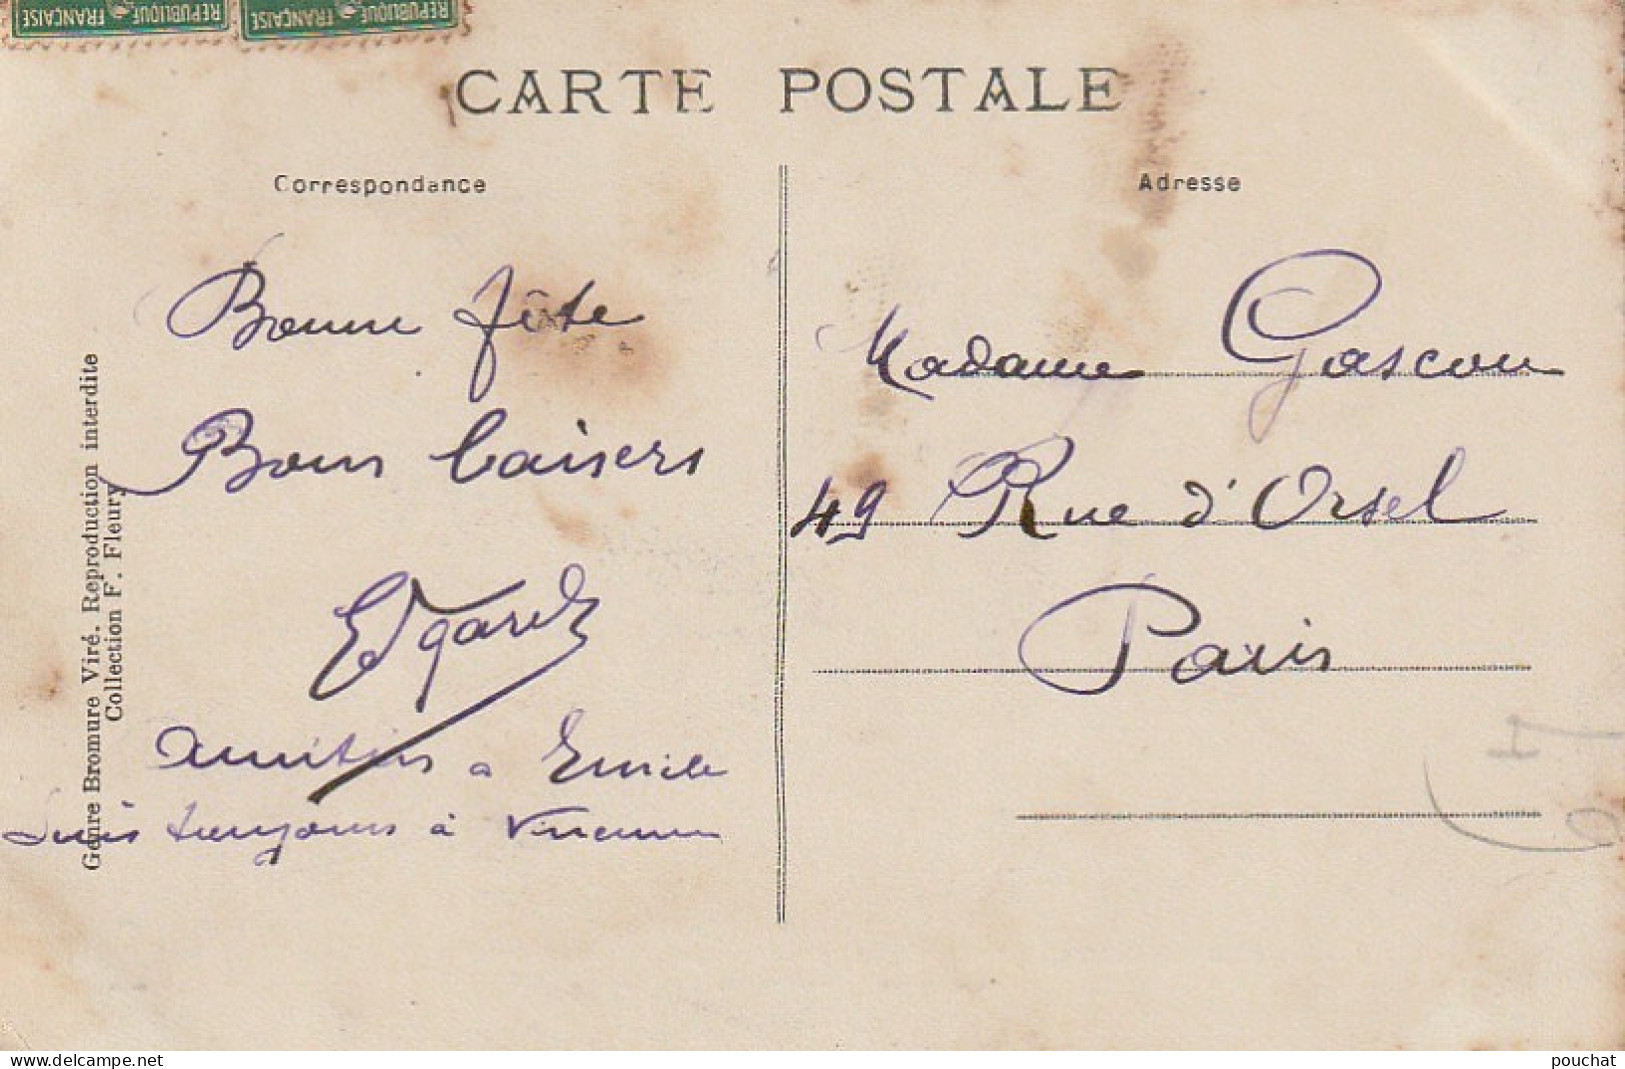 RÉPUBLIQUE FRANÇAISE
RÉPUBLIQUE FRANÇAISE
CARTE POSTALE
Correspondance
Adresse
Bonne fête
Bons baisers
Edgard
Amitiés a Emile
Suis toujours à Vincennes
Madame Gascon
49 Rue d'Orsel
Paris
Genre Bromure Viré. Reproduction interdite
Collection F. Fleury
www.delcampe.net
pouchat